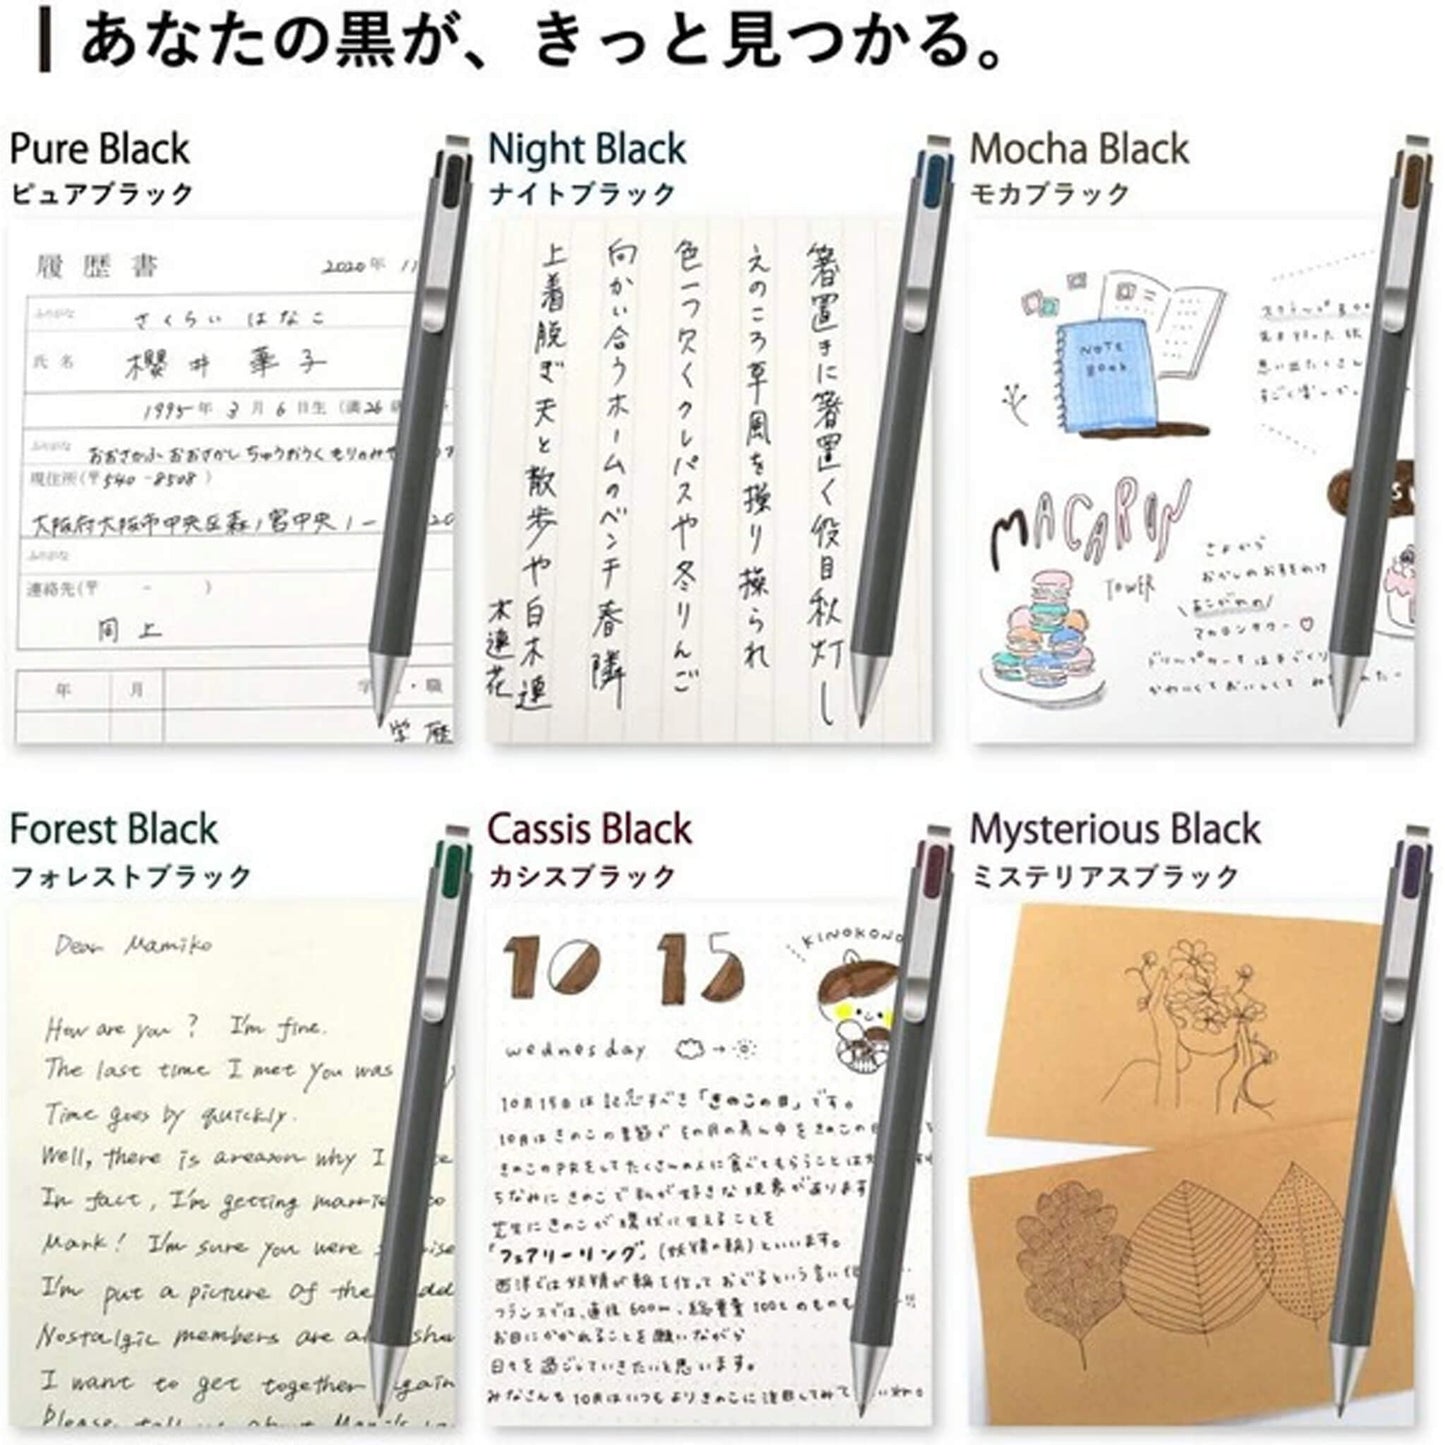 あなたの黒が、きっと見つかる。
Pure Black
ピュアブラック
履歴書
2020年 11
ふりがな さくらい はなこ
氏名 櫻井 華子
1995年 3月 6日生 (満26
ふりがな おおさかふ おおさかし ちゅうおうく もりのみ
現住所(〒540-8508)
大阪府大阪市中央区森ノ宮中央1-
ふりがな
連絡先(〒 - )
同上
年 月 学 ・職
学歴
Night Black
ナイトブラック
箸置きに箸置く役目秋灯し
えのころ草風を操り操られ
色一つ欠くクレパスや冬りんご
向かい合うホームのベンチ春隣
上着脱ぎ天と散歩や白木蓮
木蓮花
Mocha Black
モカブラック
NOTE
BOOK
思い出たくさん
MACARON
TOWER
さよから
おかしのお手をわけ
あこがれの
マカロンタワー♡
かわいくておいしくて
Forest Black
フォレストブラック
Dear Mamiko
How are you? I'm fine.
The last time I met you was
Time goes by quickly.
Well, there is a reason why I
In fact, I'm getting marri to
Mark! I'm sure you were
I'm put a picture of the
Nostalgic members are
I want to get together again
Please tell us about
Cassis Black
カシスブラック
10 15
KINOKONO
wednesday
10月15日は記念すべき「きのこの日」です。
10月はきのこの季節で その月の真ん中をきのこの日
きのこのPRをしてたくさんの人に食べてもらうことは
ちなみに きのこで私が好きな現象があります
芝生にきのこが環状に生えることを
「フェアリーリング」(妖精の輪)といいます。
西洋では妖精が輪を作って おどるという言い伝
フランスでは、直径600m、総重量100tのものも
お目にかかれることを願いながら
日々を過ごしていきたいと思います。
みなさんも10月はいつもよりきのこに注目してみて
Mysterious Black
ミステリアスブラック